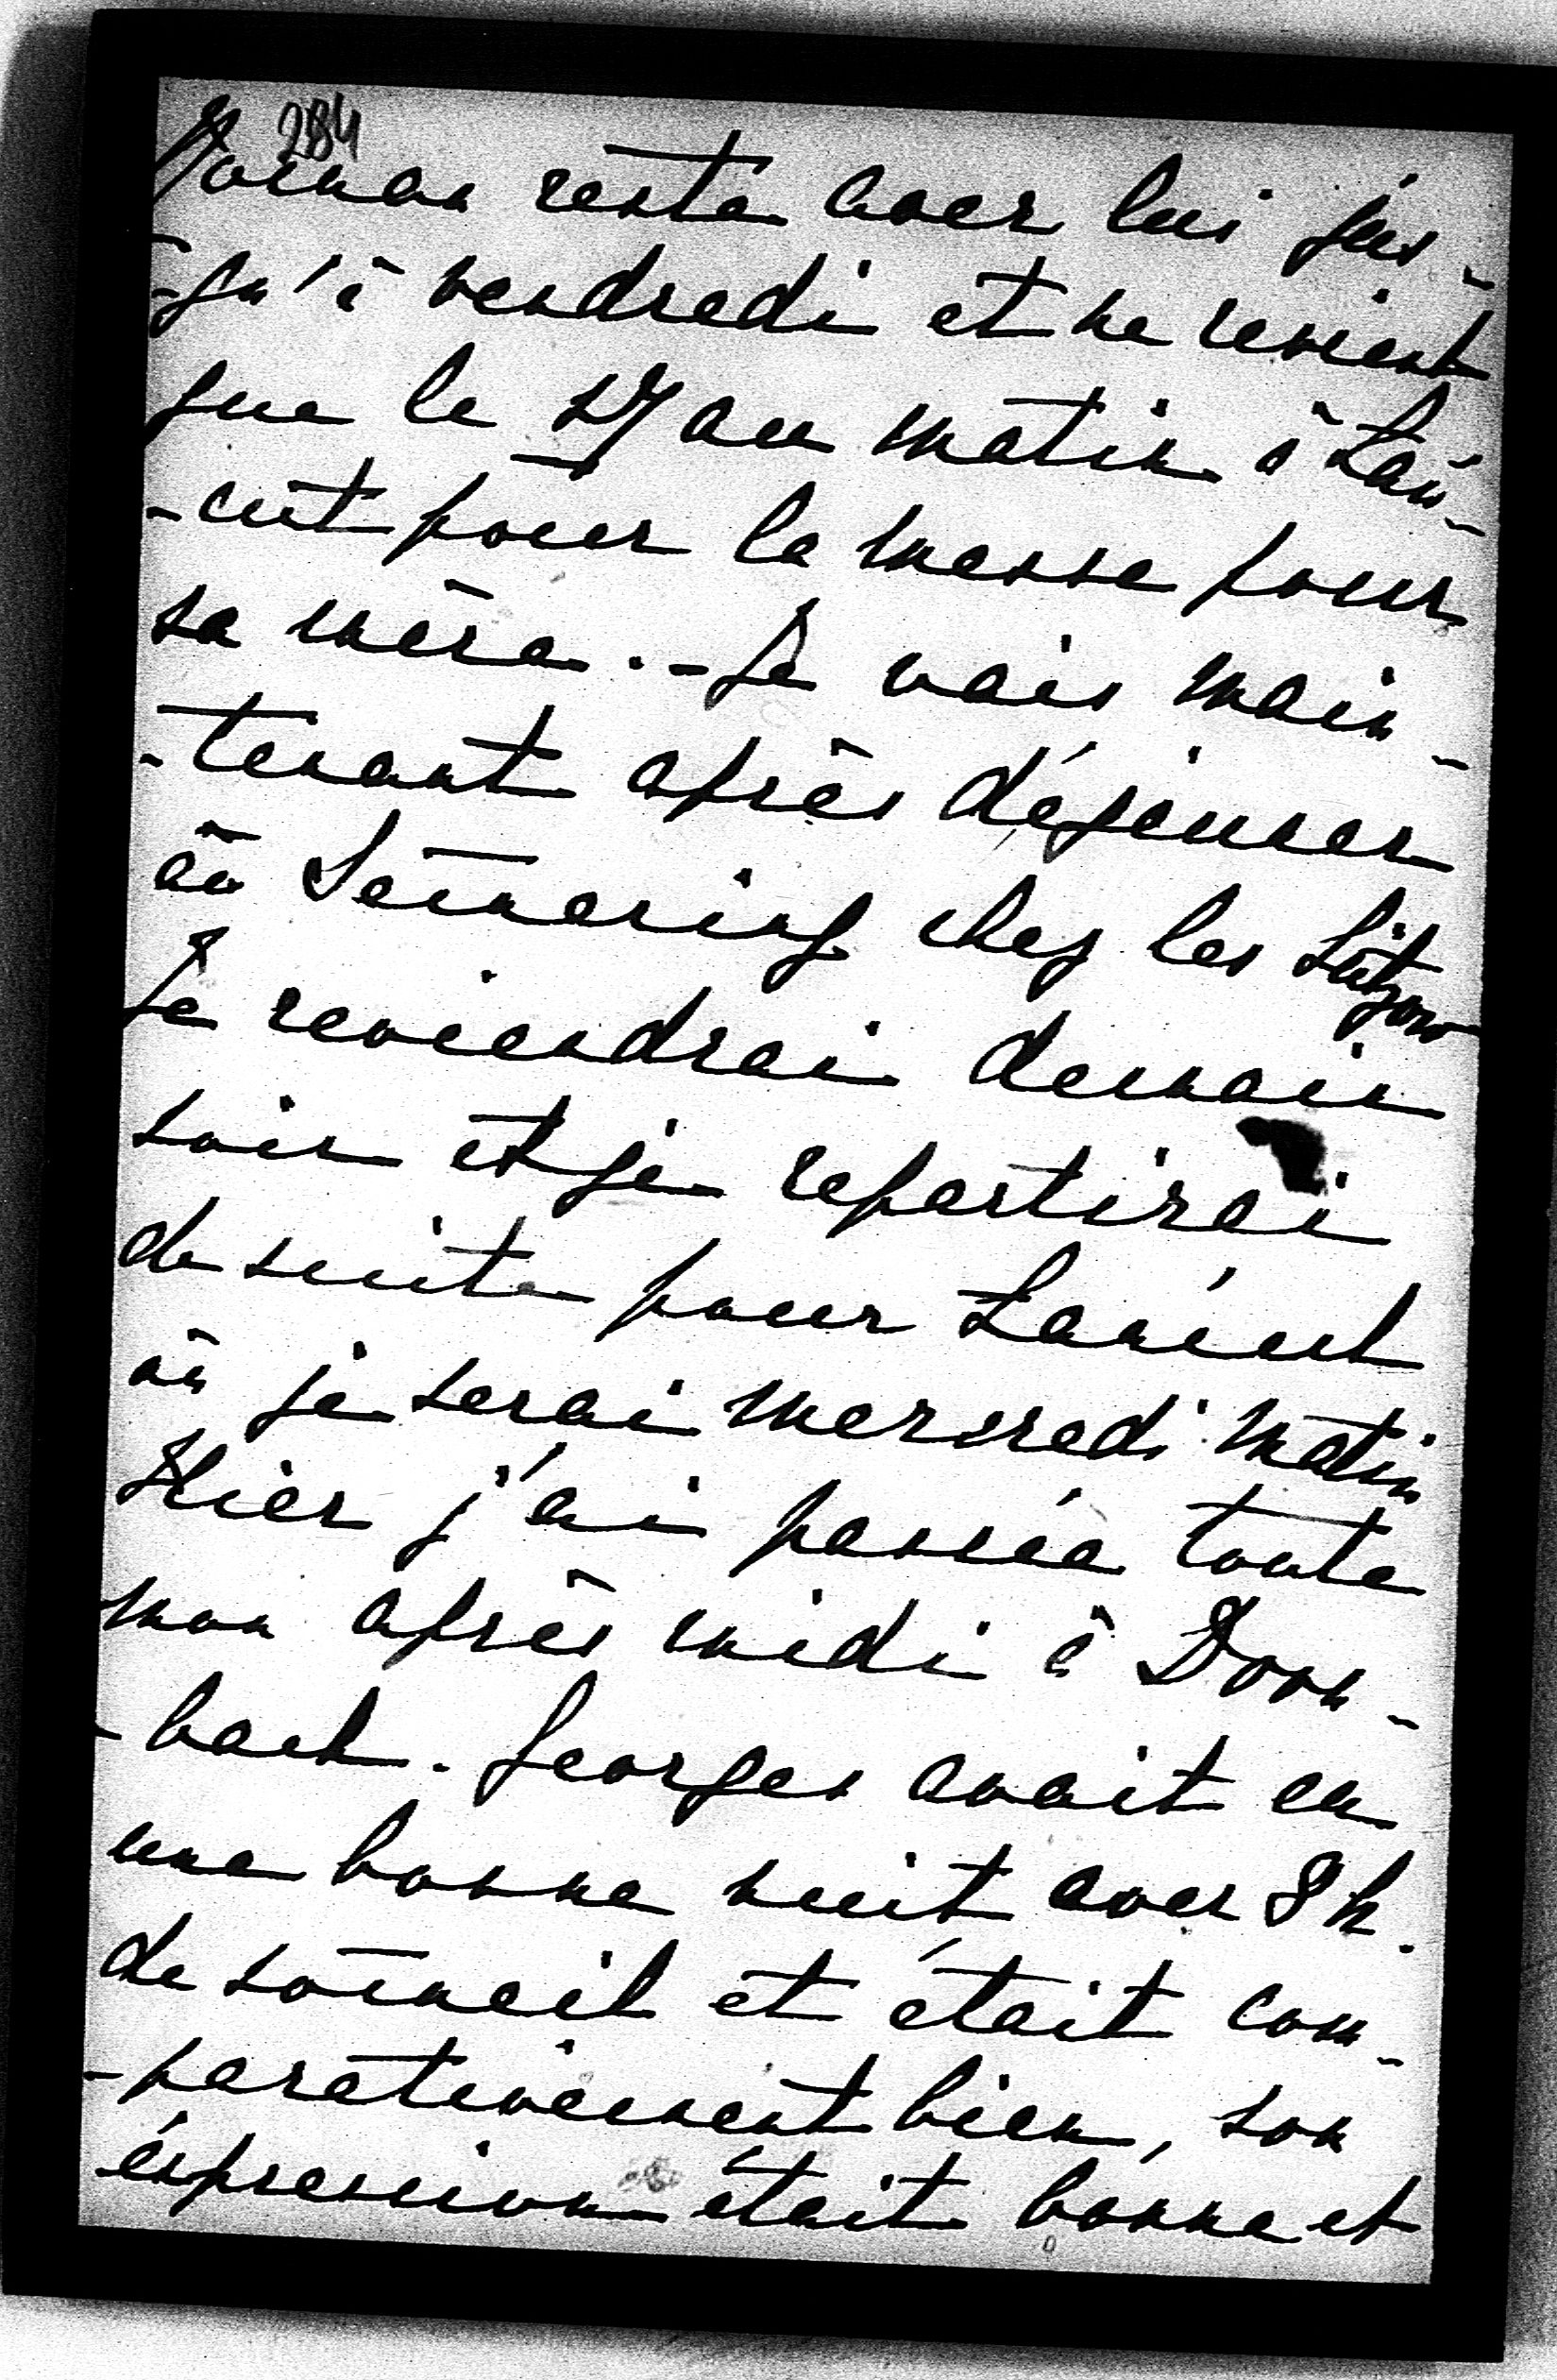 284
reste avec lui jus-
-qu'à vendredi et ne revient
que le 27 au matin à Lan-
-cut pour la messe pour
sa mère. - Je vais main-
-tenant après déjeuner
au Semering chez les Lützow
Je reviendrai demain
soir et je repartirai
de suite pour Lancut
où je serai mercredi matin
Hier j'ai passée toute
mon après midi à Dorn-
-bach. Georges avait eu
une bonne nuit avec 8 h.
de someil et était com-
-parativement bien, son
expression était bonne et